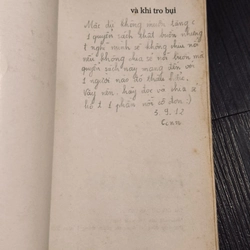 và khi tro bụi
Mặc dù không muốn tặng
1 quyển sách thật buồn nhưng
ngộ mình sẽ không chịu nổi
nếu không chia sẻ nỗi buồn mà
quyển sách này mang đến với
1 người nào đó
vậy nên, hãy đọc và chia sẻ
1 phần nỗi cô đơn :)
5.9.12